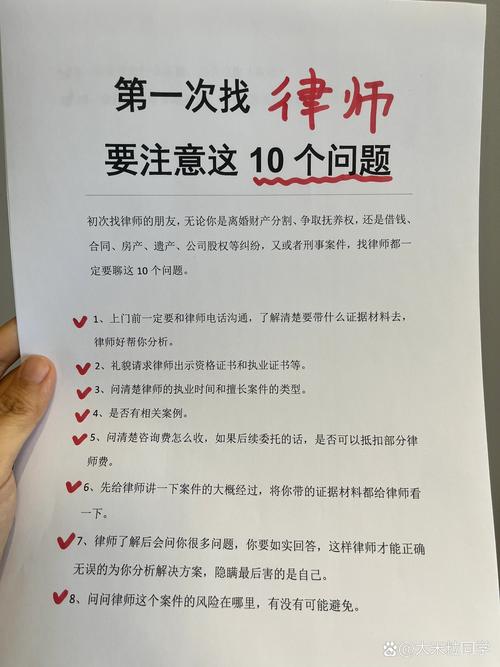 第一次找 律师
要注意这 10 个问题
初次找律师的朋友，无论你是离婚财产分割、争取抚养权，还是借钱、
合同、房产、遗产、公司股权等纠纷，又或者刑事案件，找律师都一
定要聊这 10 个问题。
1、上门前一定要和律师电话沟通，了解清楚要带什么证据材料去，
律师好帮你分析。
2、礼貌请求律师出示资格证书和执业证书等。
3、问清楚律师的执业时间和擅长案件的类型。
4、是否有相关案例。
5、问清楚咨询费怎么收，如果后续委托的话，是否可以抵扣部分律
师费。
6、先给律师讲一下案件的大概经过，将你带的证据材料都给律师看
一下。
7、律师了解后会问你很多问题，你要如实回答，这样律师才能正确
无误的为你分析解决方案，隐瞒最后害的是自己。
8、问问律师这个案件的风险在哪里，有没有可能避免。
@大米粒同学